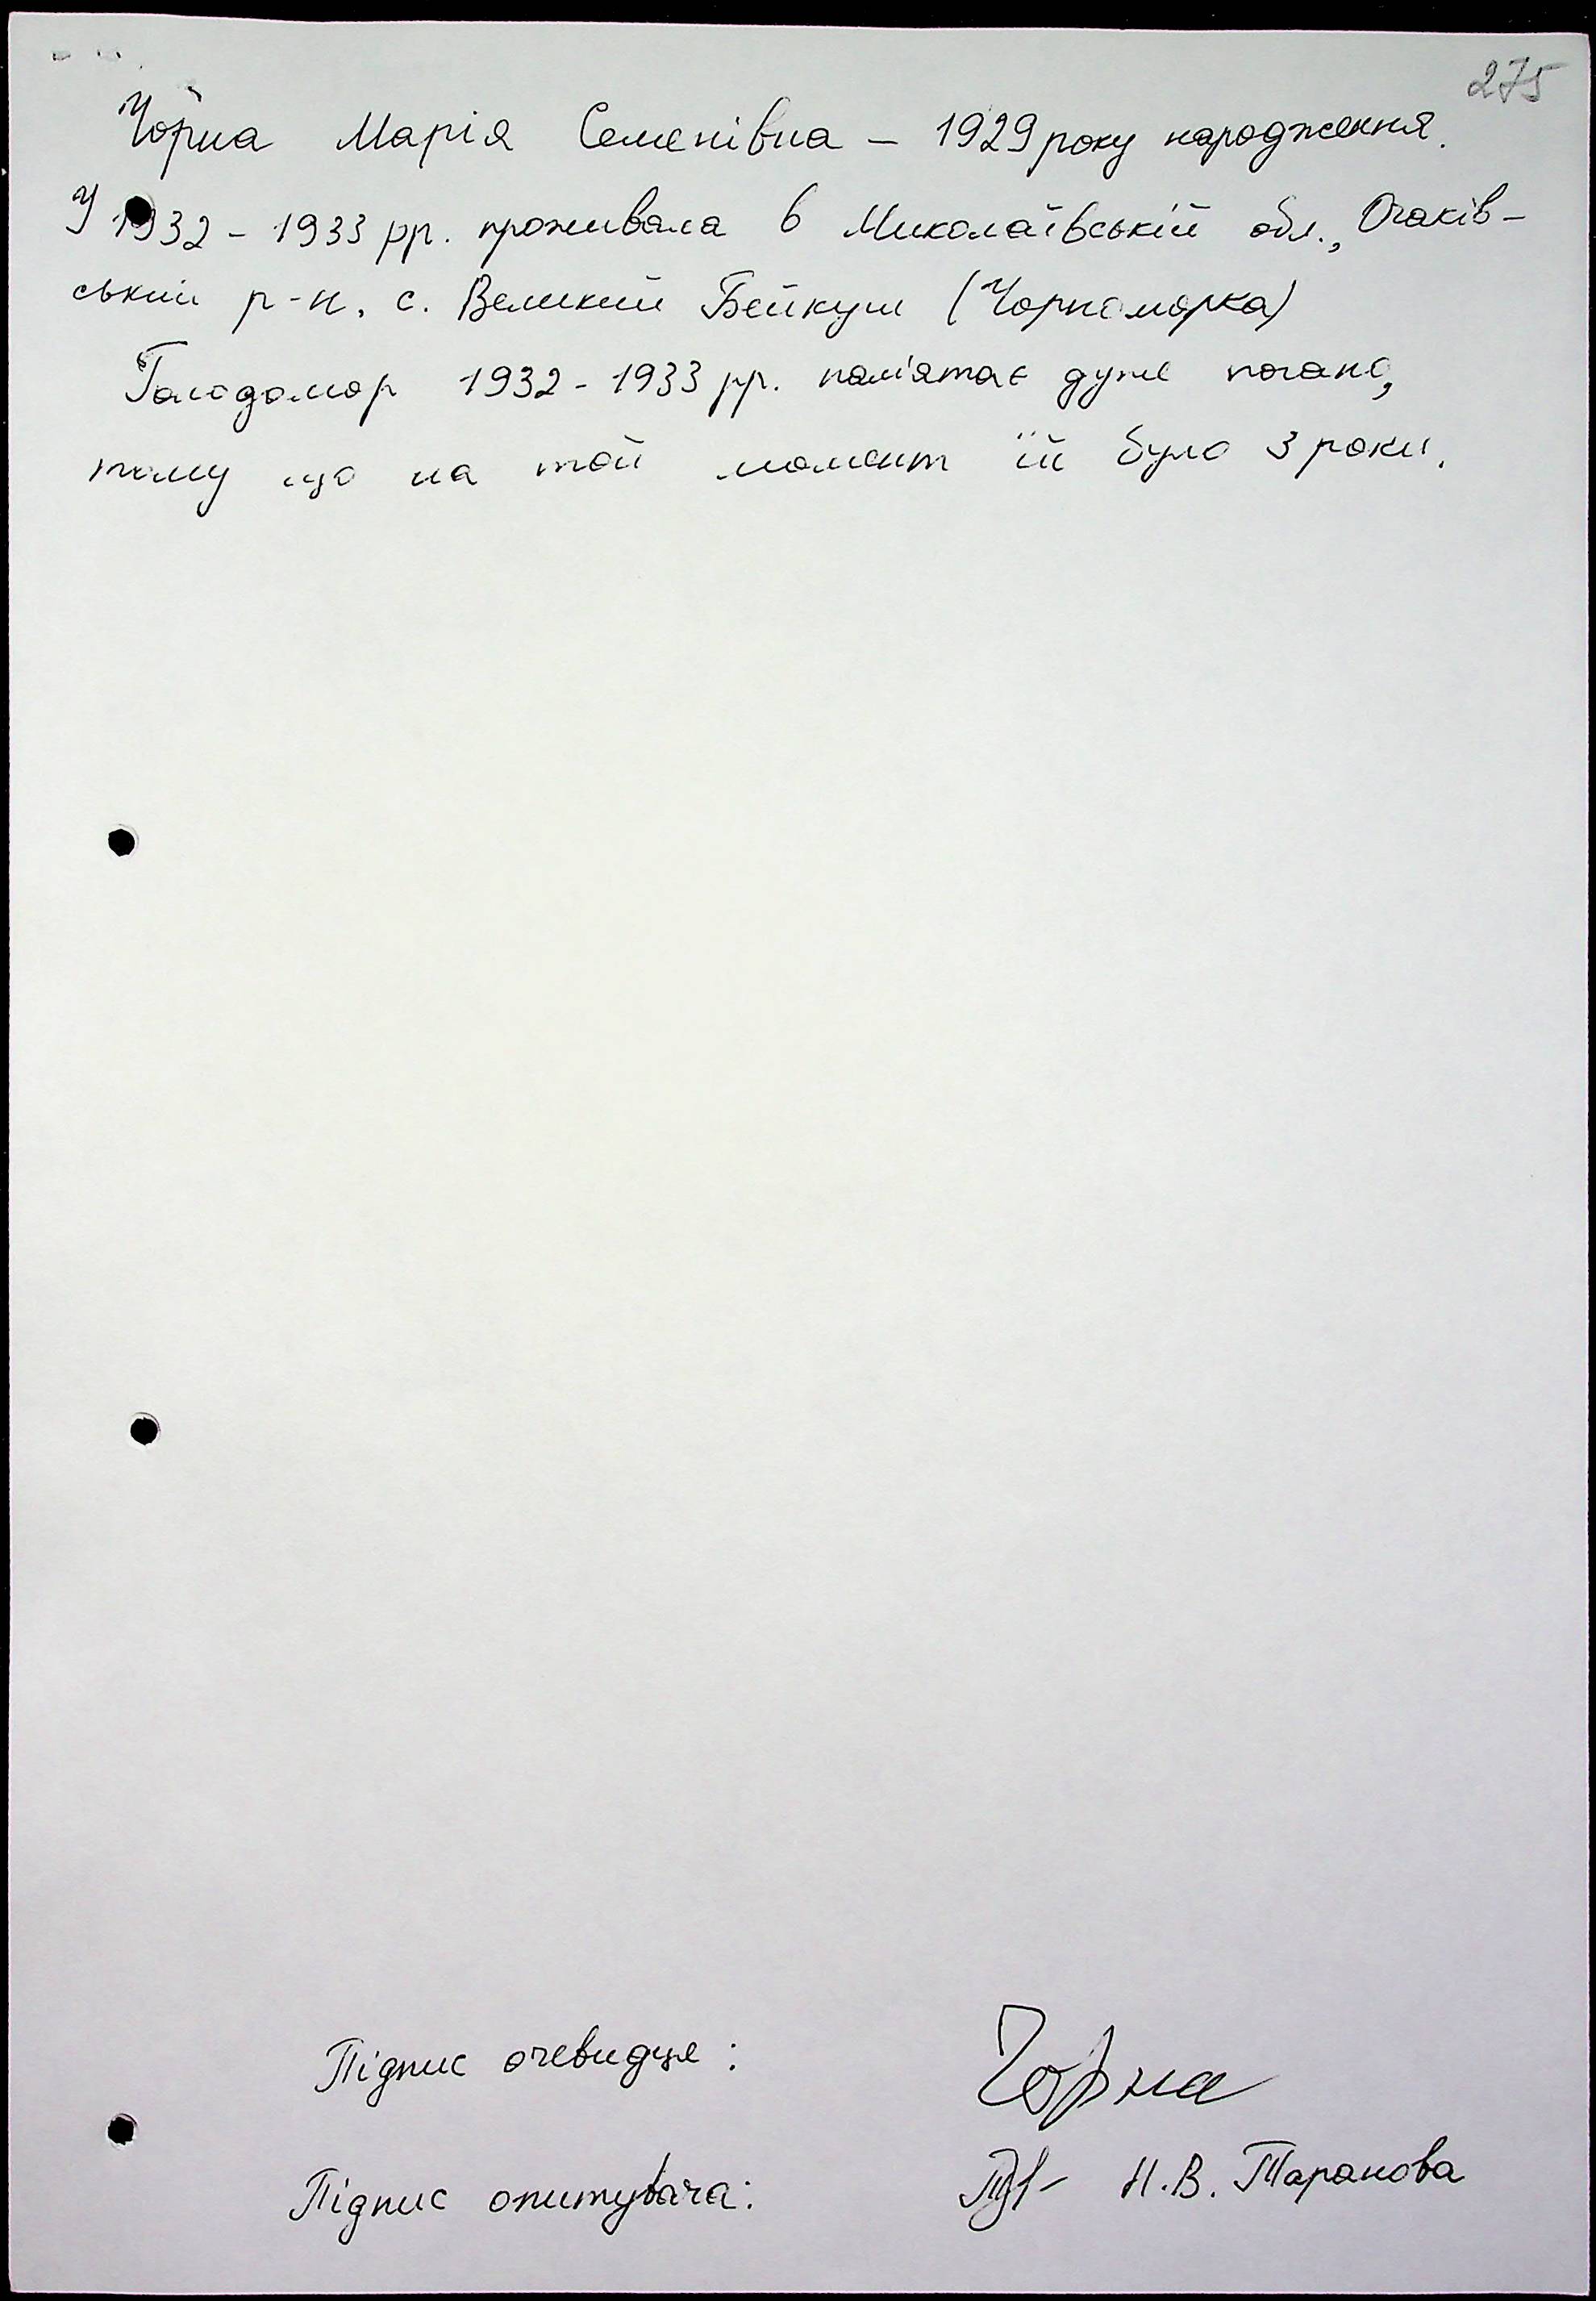 275
Чорна Марія Семенівна – 1929 року народження.
У 1932 - 1933 рр. проживала в Миколаївській обл., Очаків-
ський р-н. с. Великий Бейкуш (Чорноморка)
Голодомор 1932 - 1933 рр. пам'ятає дуже погано,
тому що на той момент їй було 3 роки.
Підпис очевидця: Чорна
Підпис опитувача: Н.В. Таранова